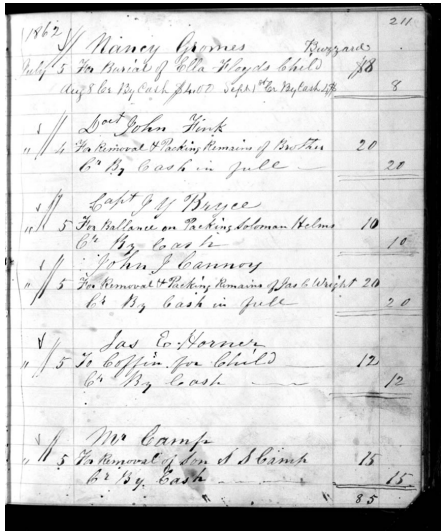 211
1862
Nancy Gromes Buzzard
July 5 For Burial of Ella Floyds Child 8
Aug 8 Cr By Cash Sept 1st Cr By Cash 8
Doct John Fink
" 4 For Removal & Packing Remains of Brother 20
Cr By Cash in full 20
Capt J Y Bryce
" 5 For Ballance on Packing Soloman Helms 10
Cr By Cash 10
John J Cannoy
" 5 For Removal & Packing Remains of Jas C Wright 20
Cr By Cash in full 20
Jas E. Horner
" 5 To Coffin for Child 12
Cr By Cash 12
Mr Camp
" 5 For Removal of Son A S Camp 15
Cr By Cash 15
" " 85